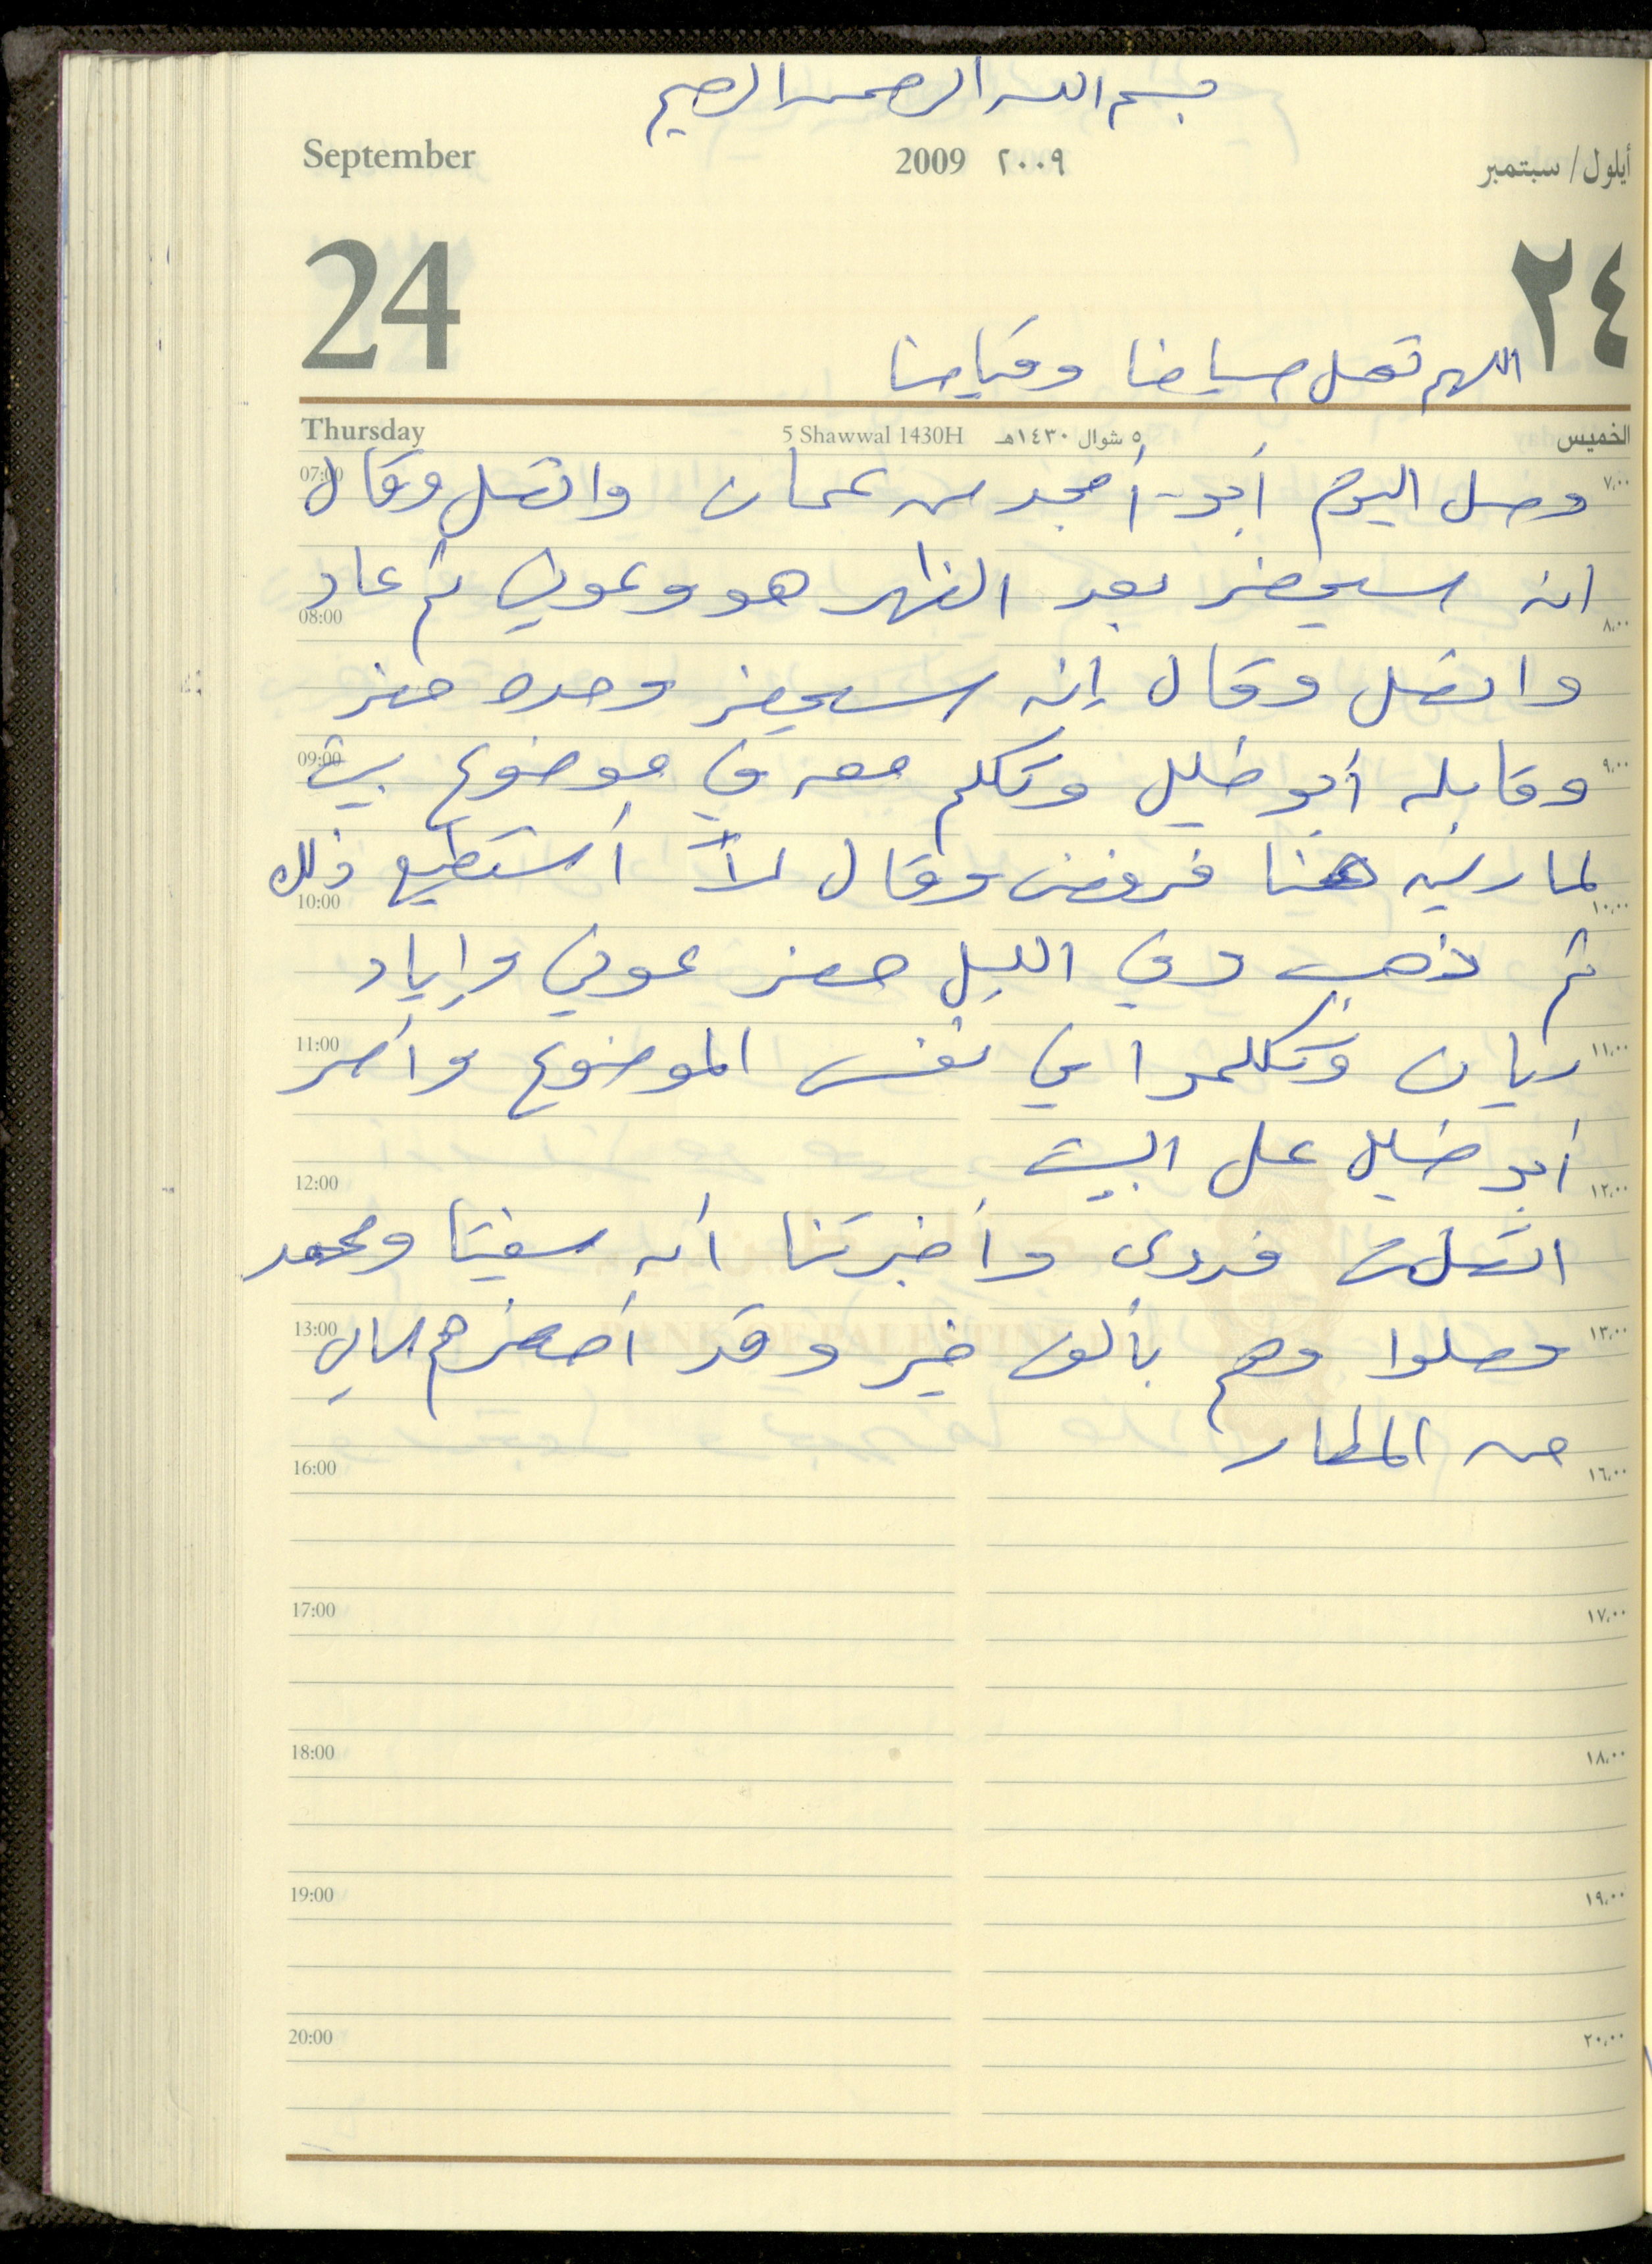 بسم الله الرحمن الرحيم
September 2009 ٢٠٠٩ أيلول / سبتمبر
24 ٢٤
اللهم تقبل صيامنا وقيامنا
Thursday 5 Shawwal 1430H ٥ شوال ١٤٣٠هـ الخميس
07:00 وصل اليوم أبو أمجد من عمان واتصل وقال ٧,٠٠
انه سيحضر بعد الظهر هو وعوني ثم عاد
08:00 ٨,٠٠
واتصل وقال إنه سيحضر وحده حضر
09:00 وقابله أبو خليل وتكلم معه في موضوع بيت ٩,٠٠
لمارييه هنا فرفض وقال لا أستطيع ذلك
10:00 ١٠,٠٠
ثم ذهب وفي الليل حضر عوني وإياد
11:00 ريان وتكلموا في نفس الموضوع وأصر ١١,٠٠
أبو خليل على البيت
12:00 ١٢,٠٠
اتصلت فدوى وأخبرتنا أنه سفيتا ومحمد
BANK OF PALESTINE
13:00 وصلوا وهم بألف خير وقد أحضرهم ١٣,٠٠
من المطار
16:00 ١٦,٠٠
17:00 ١٧,٠٠
18:00 ١٨,٠٠
19:00 ١٩,٠٠
20:00 ٢٠,٠٠